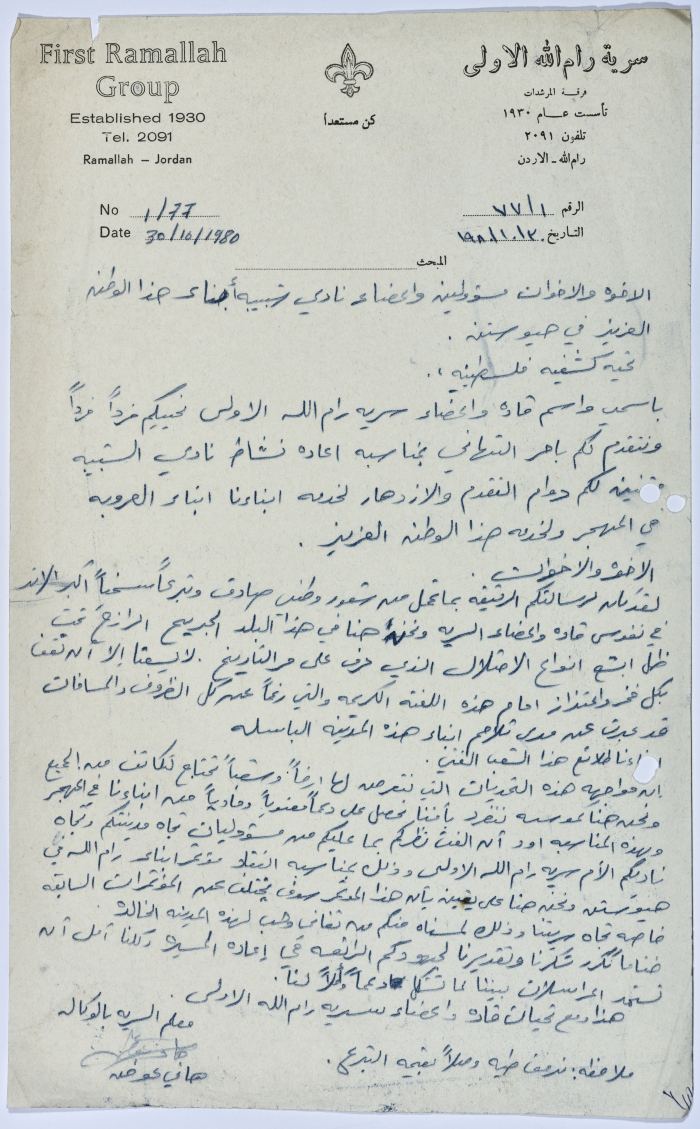 First Ramallah
Group
Established 1930
Tel. 2091
Ramallah – Jordan
كن مستعداً
سرية رام الله الاولى
فرقة المرشدات
تأسست عام ١٩٣٠
تلفون ٢٠٩١
رام الله - الاردن
No 1/77
Date 30/10/1980
الرقم ٧٧/١
التاريخ
المبحث
الاخوه والاخوات مسؤولين واعضاء نادي شبيبة أبناء هذا الوطن
العزيز في هيوستن .
تحيه كشفيه فلسطينيه ،.
باسمي واسم قادة واعضاء سريه رام الله الاولى نحييكم فرداً فرداً
ونتقدم لكم باحر التهاني بمناسبه اعاده نشاط نادي الشبيبه
متمنين لكم دوام التقدم والازدهار لخدمه ابناءنا ابناء العروبه
في المهجر ولخدمه هذا الوطن العزيز .
الاخوة والاخوات
لقد كان لرسالتكم الرقيقه بما تحمل من شعور وطني صادق وتبرعاً سخياً أكبر الاثر
في نفوس قاده واعضاء السريه ونحن هنا في هذا البلد الجريح الرازح تحت
ظل ابشع انواع الاحتلال الذي عرف على مر التاريخ . لا يسعنا إلا أن نقف
بكل فخر واعتزاز امام هذه اللفته الكريمه والتي رغماً عن كل الظروف والمسافات
قد عبرت عن مدى تلاحم ابناء هذه المدينه الباسله
هذا الشعب
إن مواجهه هذه التحديات التي نتعرض لها ارضاً وشعباً تحتاج لتكاتف من الجميع
ونحن هنا كموسسه ننفرد بأننا نحصل على دعماً معنوياً ومادياً من ابناءنا في المهجر
وبهذه المناسبه اود أن الفت نظركم بما عليكم من مسؤوليات تجاه مدينتكم وتجاه
ناديكم الأم سريه رام الله الاولى وذلك بمناسبه انعقاد مؤتمر ابناء رام الله في
هيوستن ونحن هنا على يقين بأن هذا المؤتمر سوف يختلف عن المؤتمرات السابقه
خاصه تجاه سريتنا وذلك لمسناه منكم من تفاني وحب لهذه المدينه الخالده
ختاماً نكرر شكرنا وتقديرنا لجهودكم الرائعه في إعاده المسيره وكلنا أمل أن
تستمر المراسلات بيننا لما تشكل دعماً وأملاً لنا .
هذا مع تحيات قاده واعضاء سريه رام الله الاولى .
معلم السريه بالوكاله
هاني عوض
ملاحظه : نرفق طيه وصلاً بقيمه التبرع .